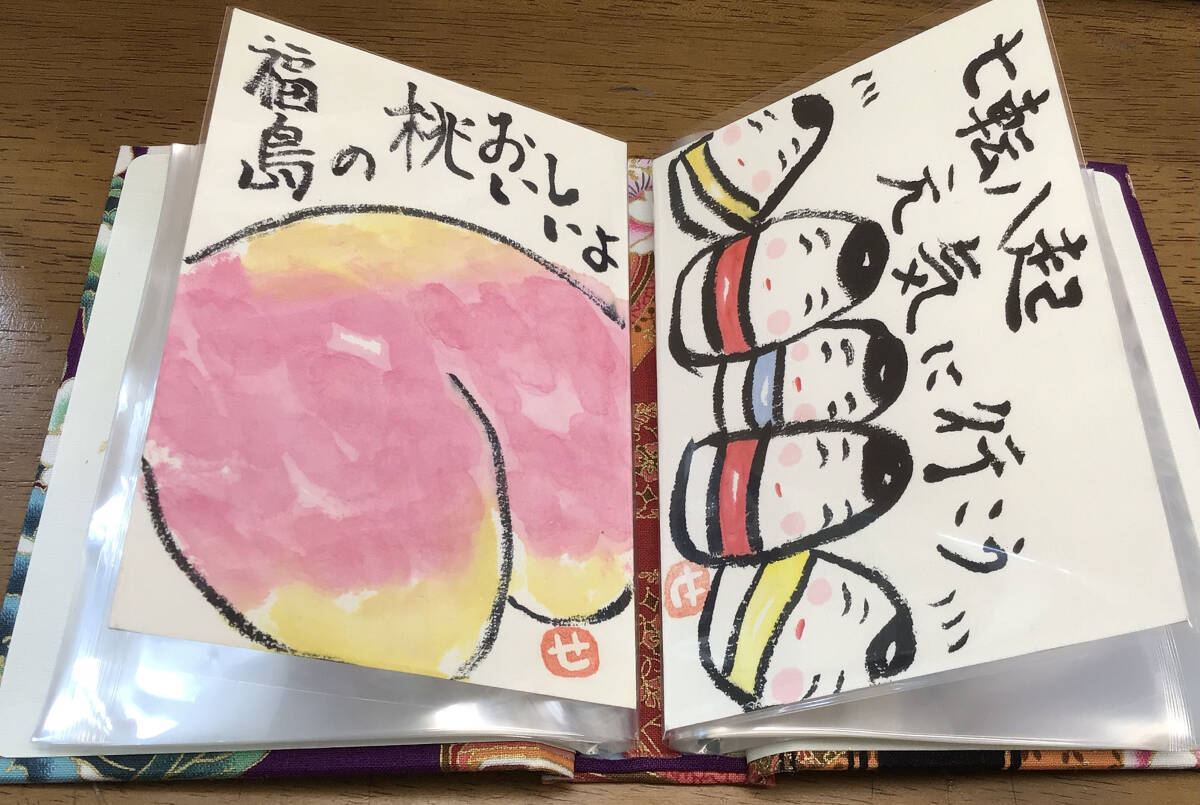 福島の
桃
おいしいよ
せ
七転八起
元気に行こう
せ